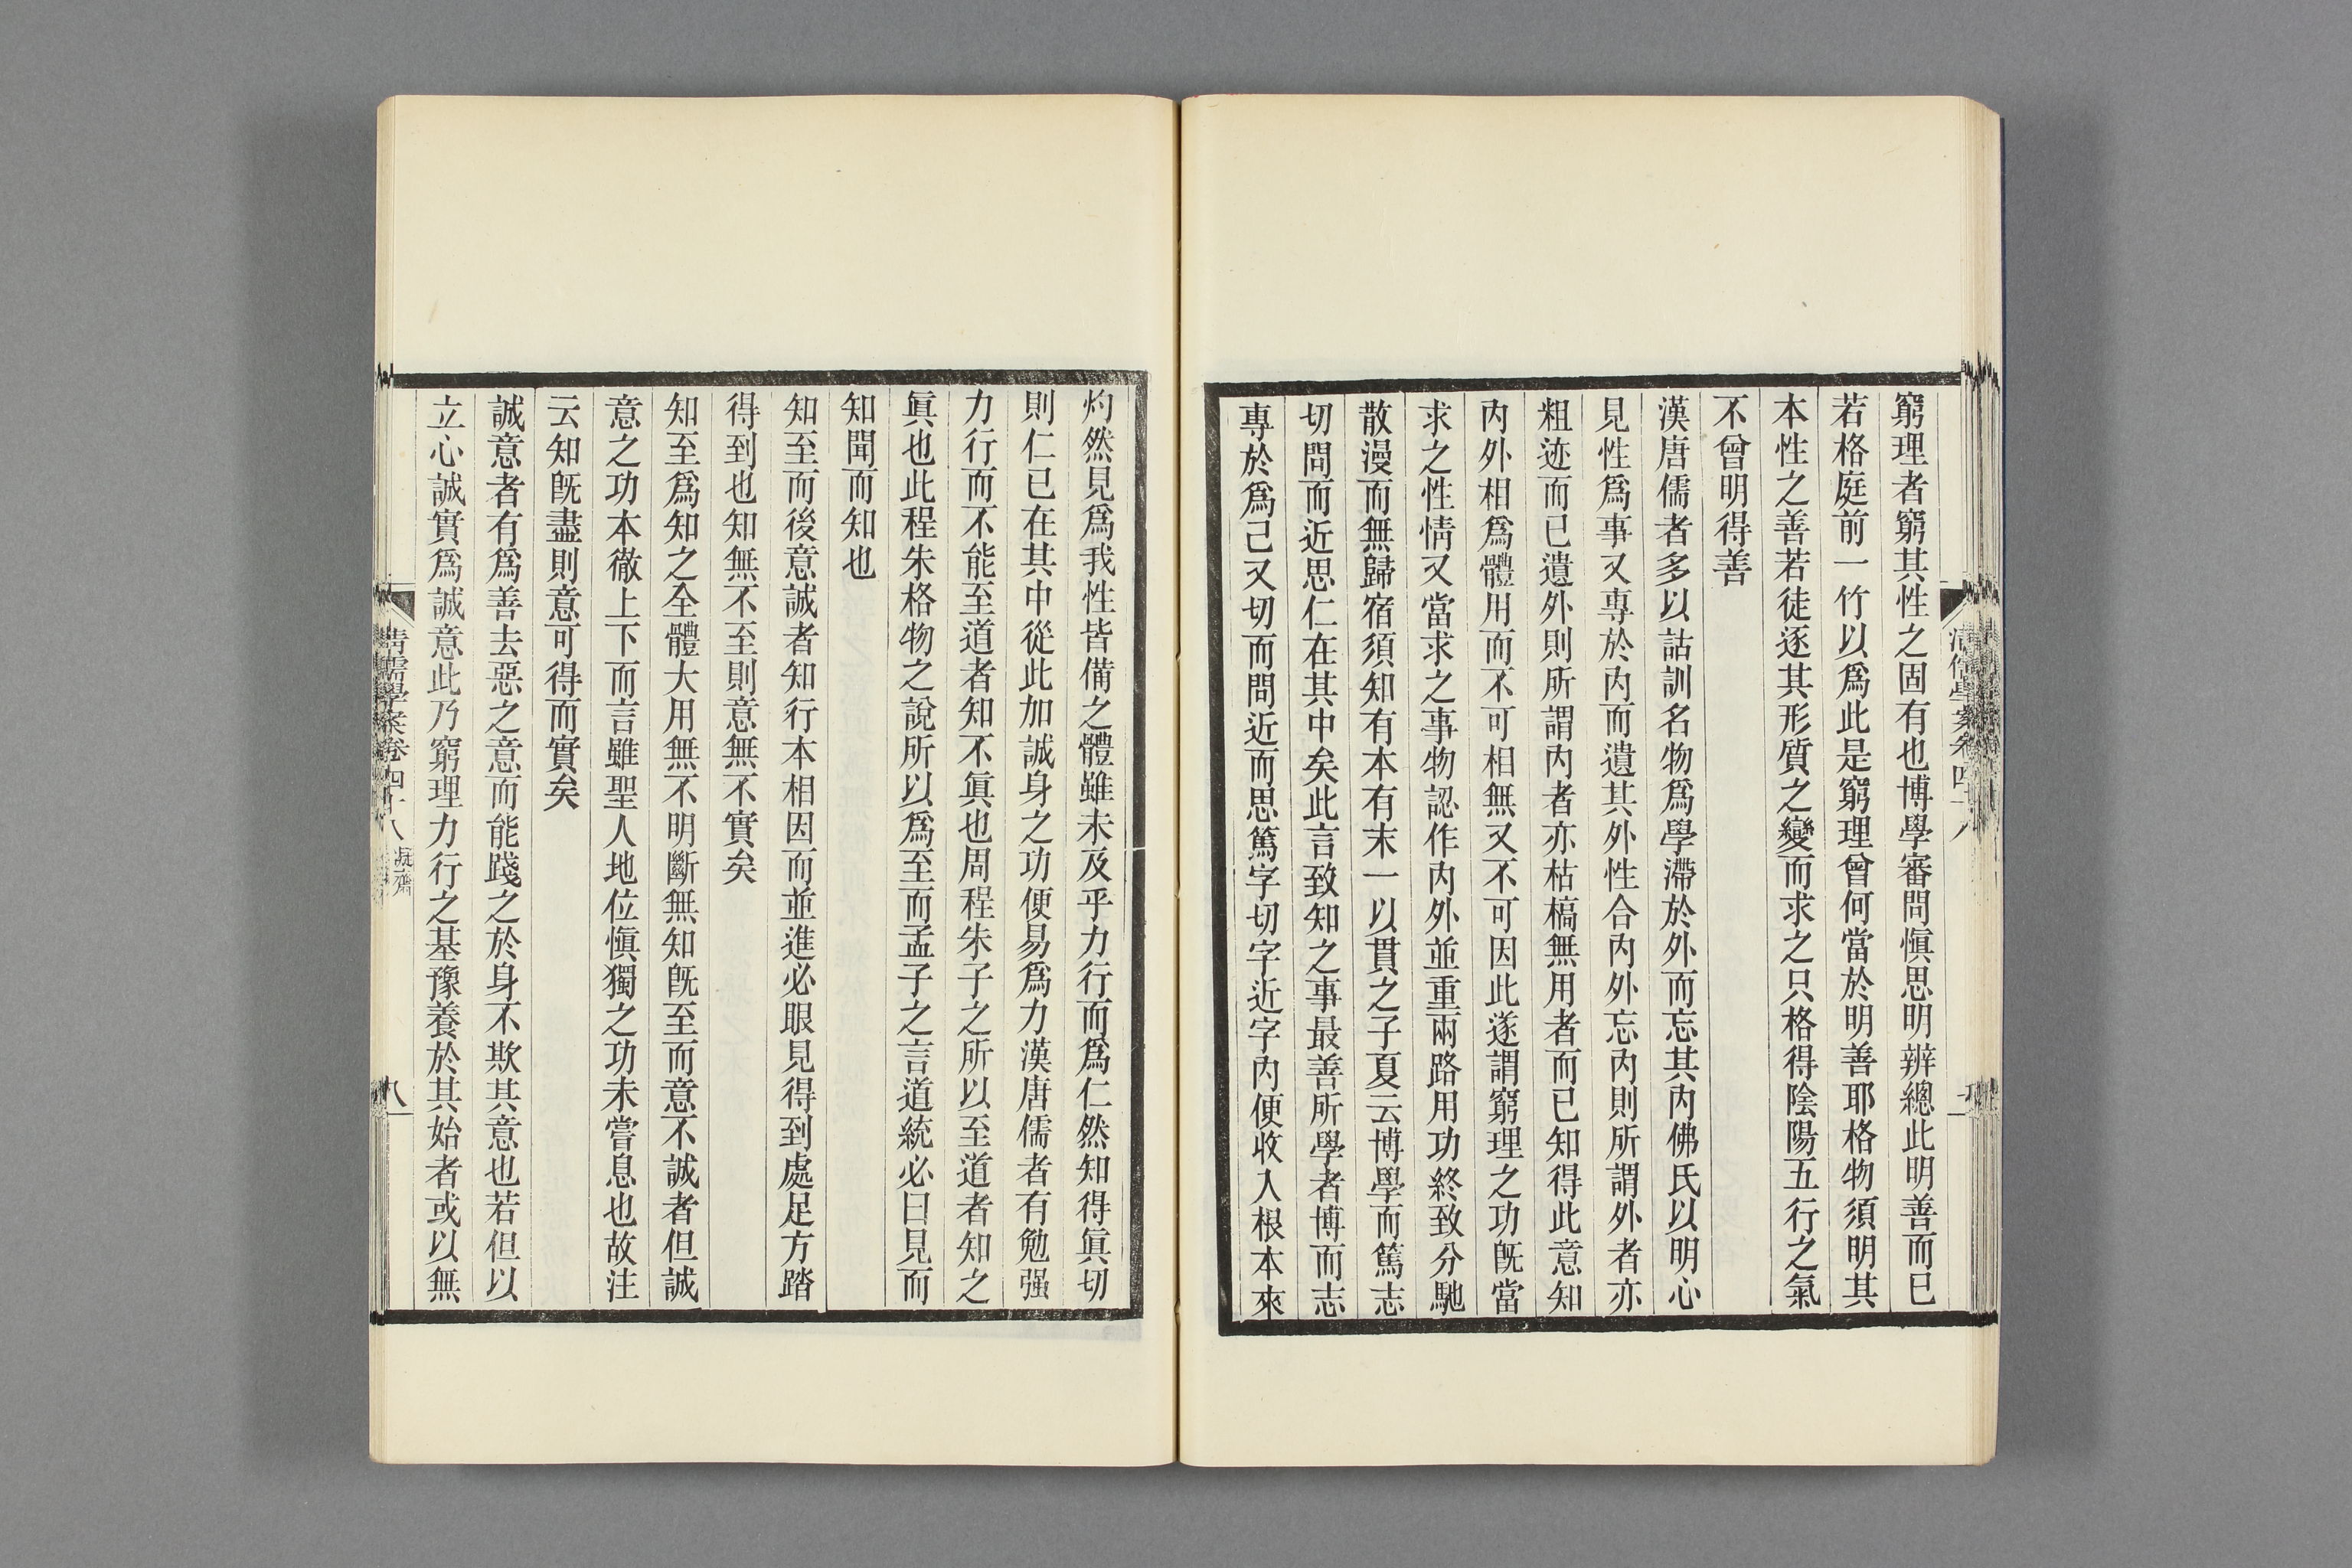 窮理者窮其性之固有也博學審問愼思明辨總此明善而已
若格庭前一竹以爲此是窮理曾何當於明善耶格物須明其
本性之善若徒逐其形質之變而求之只格得陰陽五行之氣
不曾明得善
漢唐儒者多以詁訓名物爲學滯於外而忘其内佛氏以明心
見性爲事又專於内而遺其外性合内外忘内則所謂外者亦
粗迹而已遺外則所謂内者亦枯槁無用者而已知得此意知
内外相爲體用而不可相無又不可因此遂謂窮理之功旣當
求之性情又當求之事物認作内外並重兩路用功終致分馳
散漫而無歸宿須知有本有末一以貫之子夏云博學而篤志
切問而近思仁在其中矣此言致知之事最善所學者博而志
專於爲己又切而問近而思篤字切字近字内便收入根本來
灼然見爲我性皆備之體雖未及乎力行而爲仁然知得眞切
則仁已在其中從此加誠身之功便易爲力漢唐儒者有勉强
力行而不能至道者知不眞也周程朱子之所以至道者知之
眞也此程朱格物之說所以爲至而孟子之言道統必曰見而
知聞而知也
知至而後意誠者知行本相因而並進必眼見得到處足方踏
得到也知無不至則意無不實矣
知至爲知之全體大用無不明斷無知旣至而意不誠者但誠
意之功本徹上下而言雖聖人地位愼獨之功未嘗息也故注
云知旣盡則意可得而實矣
誠意者有爲善去惡之意而能踐之於身不欺其意也若但以
立心誠實爲誠意此乃窮理力行之基豫養於其始者或以無
清儒學案卷四十八 凝齋
八